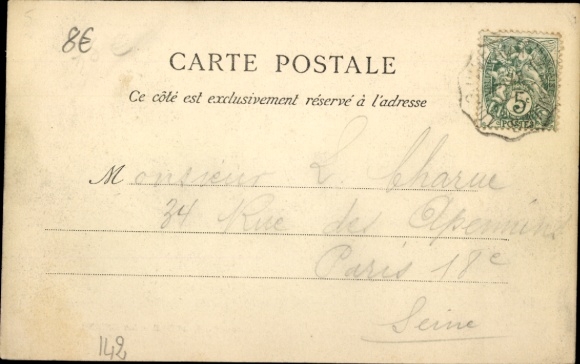 8€
CARTE POSTALE
Ce côté est exclusivement réservé à l'adresse
5c
POSTES
Monsieur L. Charue
34 Rue des Apennins
Paris 18e
Seine
142